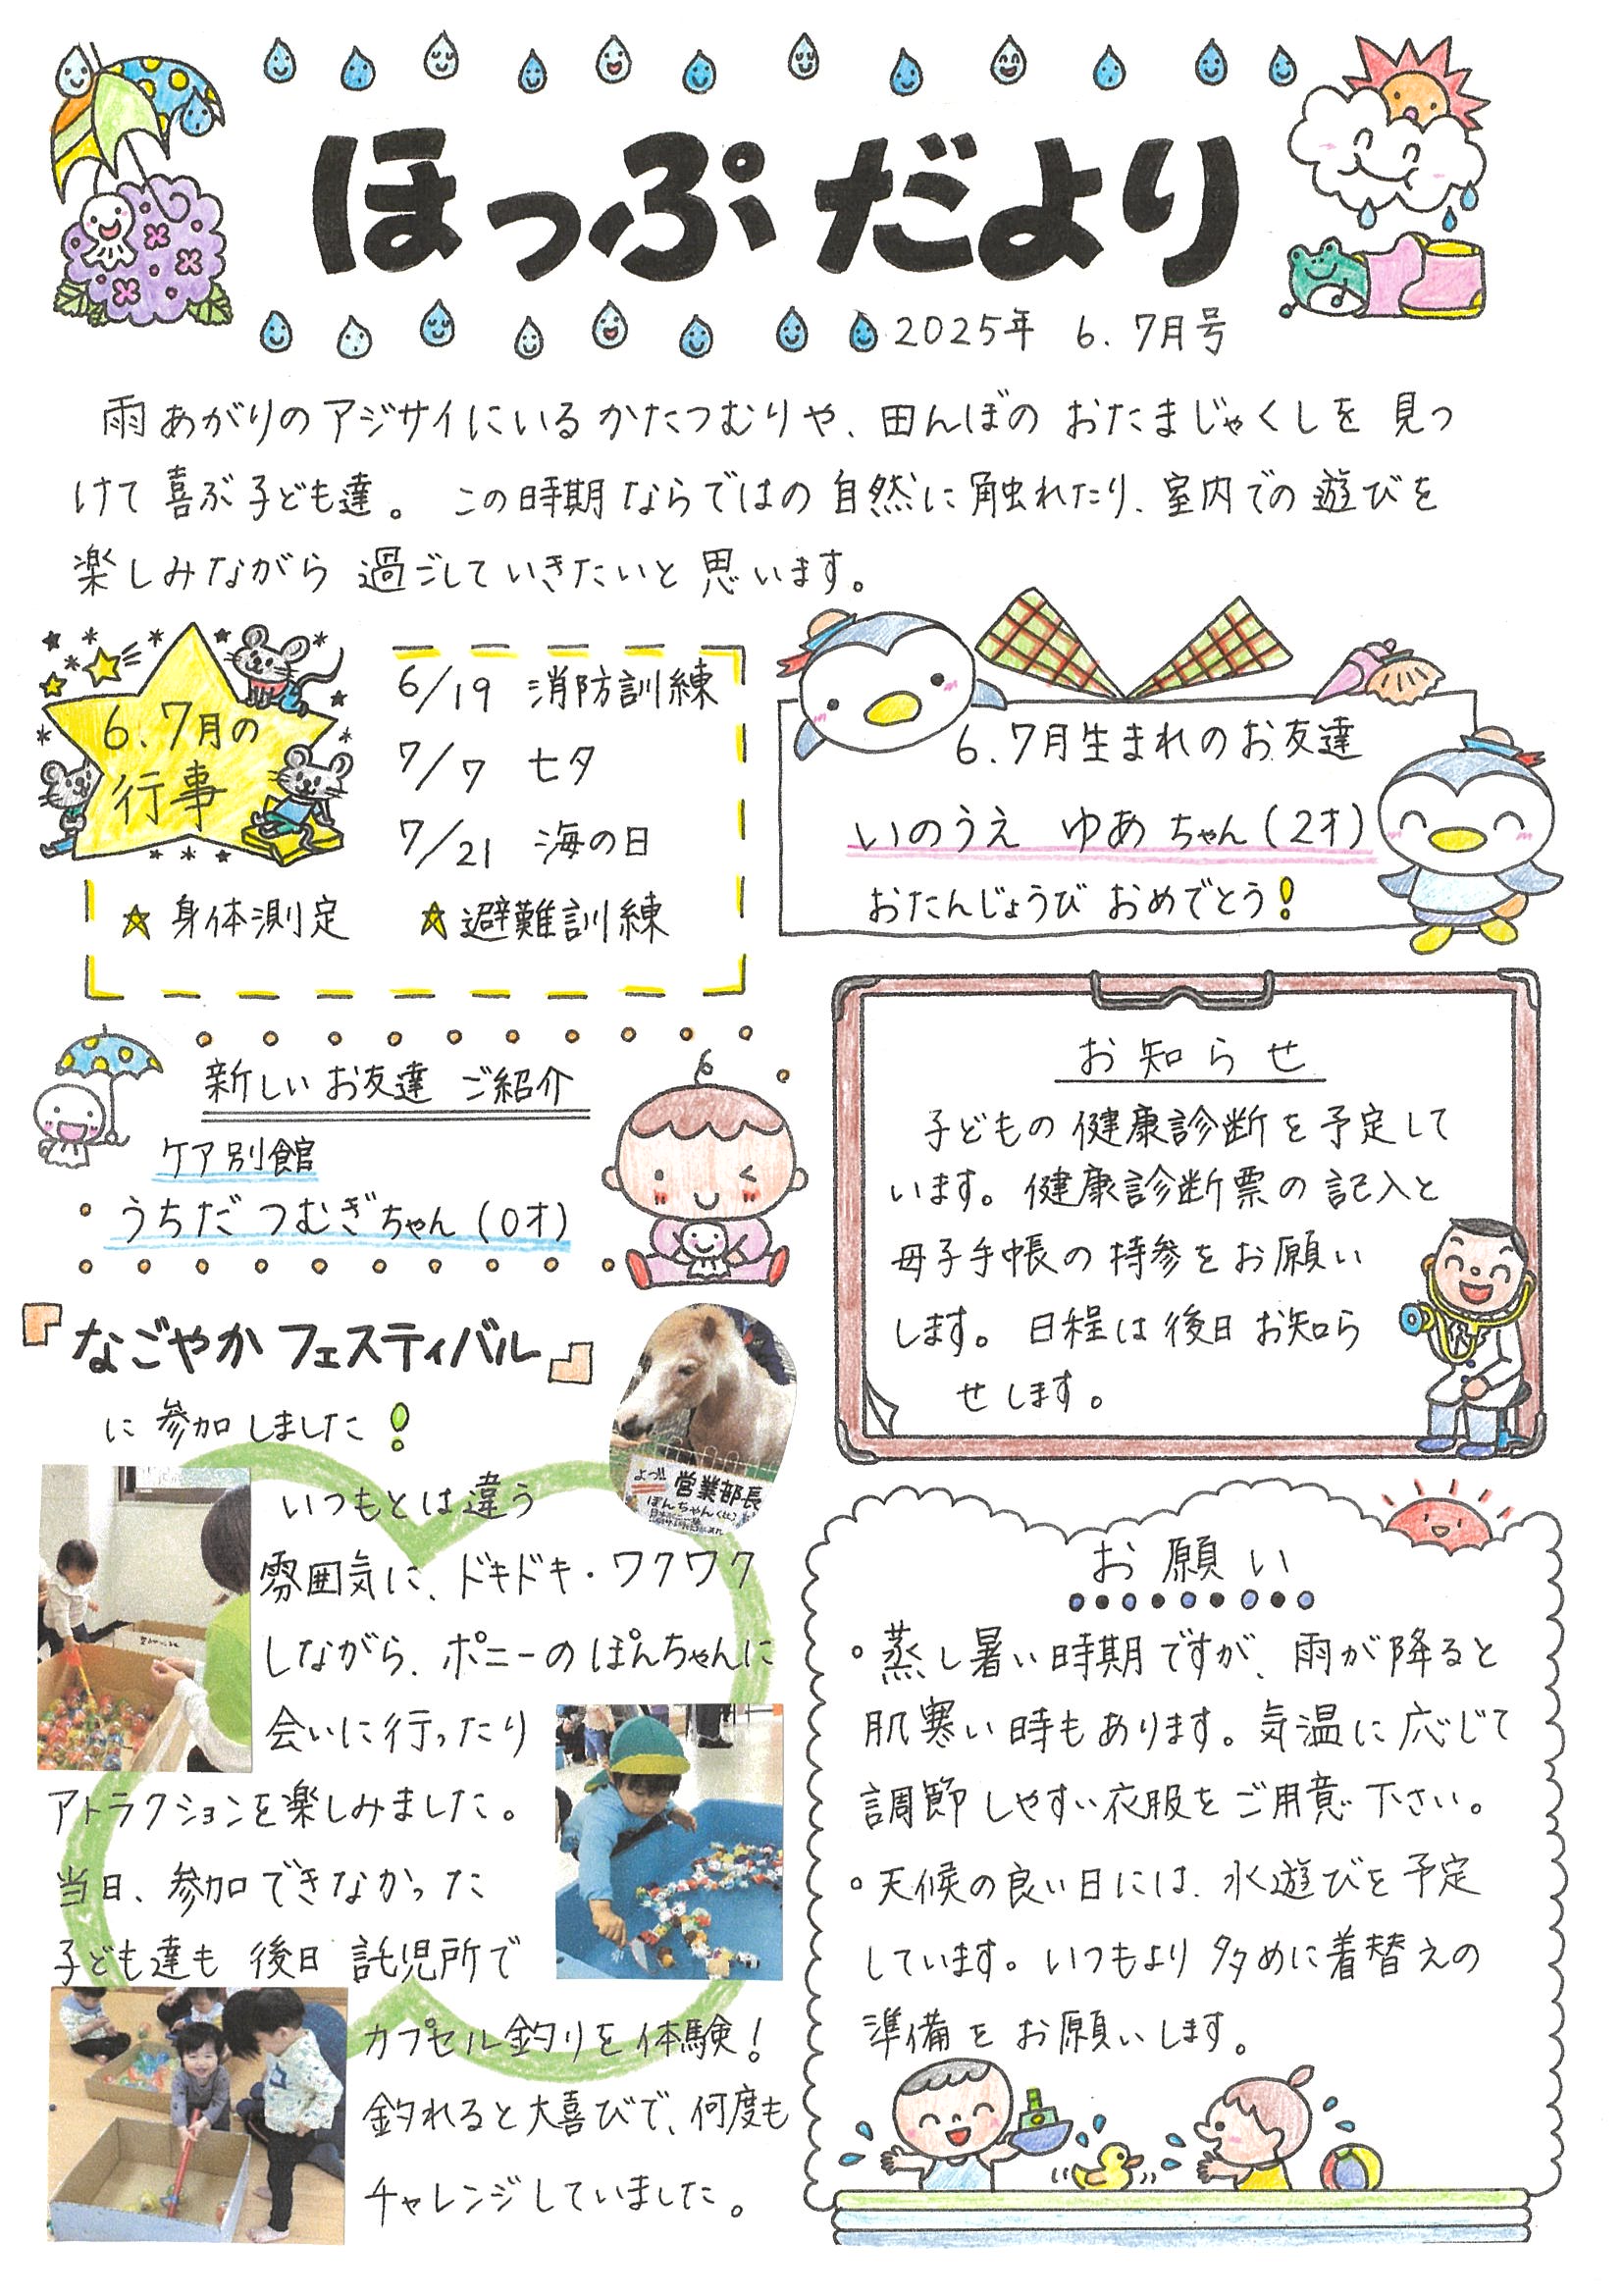 ほっぷだより
2025年 6.7月号
雨あがりのアジサイにいるかたつむりや、田んぼの おたまじゃくしを 見つ
けて 喜ぶ 子ども達。 この時期ならではの 自然に触れたり、室内での遊びを
楽しみながら 過ごしていきたいと 思います。
6.7月の
行事
6/19 消防訓練
7/7 七夕
7/21 海の日
☆身体測定 ☆避難訓練
6.7月生まれのお友達
いのうえ ゆあ ちゃん(2才)
おたんじょうび おめでとう!
新しいお友達 ご紹介
ケア別館
うちだ つむぎちゃん(0才)
お知らせ
子どもの健康診断を予定して
います。健康診断票の記入と
母子手帳の持参をお願い
します。日程は後日お知ら
せします。
『なごやかフェスティバル』
に参加しました!
よっ!!
営業部長
ぽんちゃん
いつもとは違う
雰囲気に、ドキドキ・ワクワク
しながら、ポニーのぽんちゃんに
会いに行ったり
アトラクションを楽しみました。
当日、参加できなかった
子ども達も 後日 託児所で
カプセル釣りを体験!
釣れると大喜びで、何度も
チャレンジしていました。
お願い
。蒸し暑い時期ですが、雨が降ると
肌寒い時もあります。気温に応じて
調節しやすい衣服をご用意下さい。
。天候の良い日には、水遊びを予定
しています。いつもより多めに着替えの
準備をお願いします。